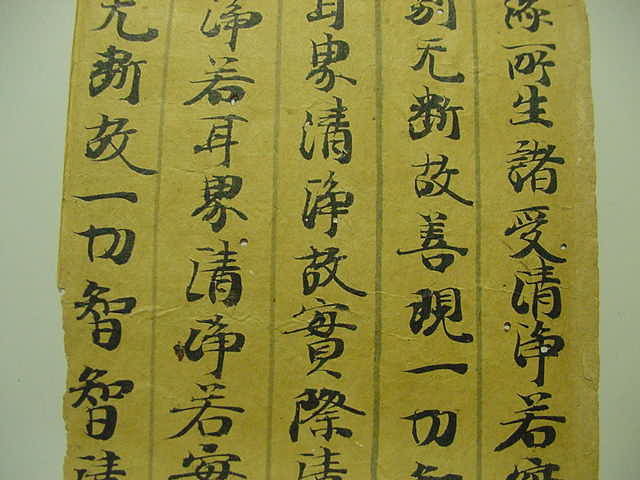 縁所生諸受清浄若實
別无断故善現一切智
耳界清浄故實際清
浄若耳界清浄若實
无断故一切智智清